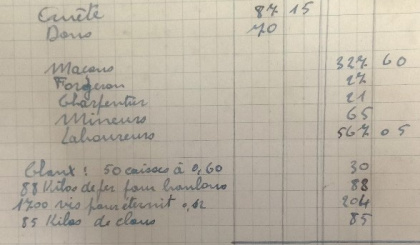 Curète 87 15
Dons 70
Maçons 327 60
Forgeron 27
Charpentier 21
Mineurs 65
Laboureurs 567 05
Chaux : 50 caisses à 0,60 30
88 Kilos de fer pour boulons 88
1700 vis pour éternit 0,12 204
85 Kilos de clous 85